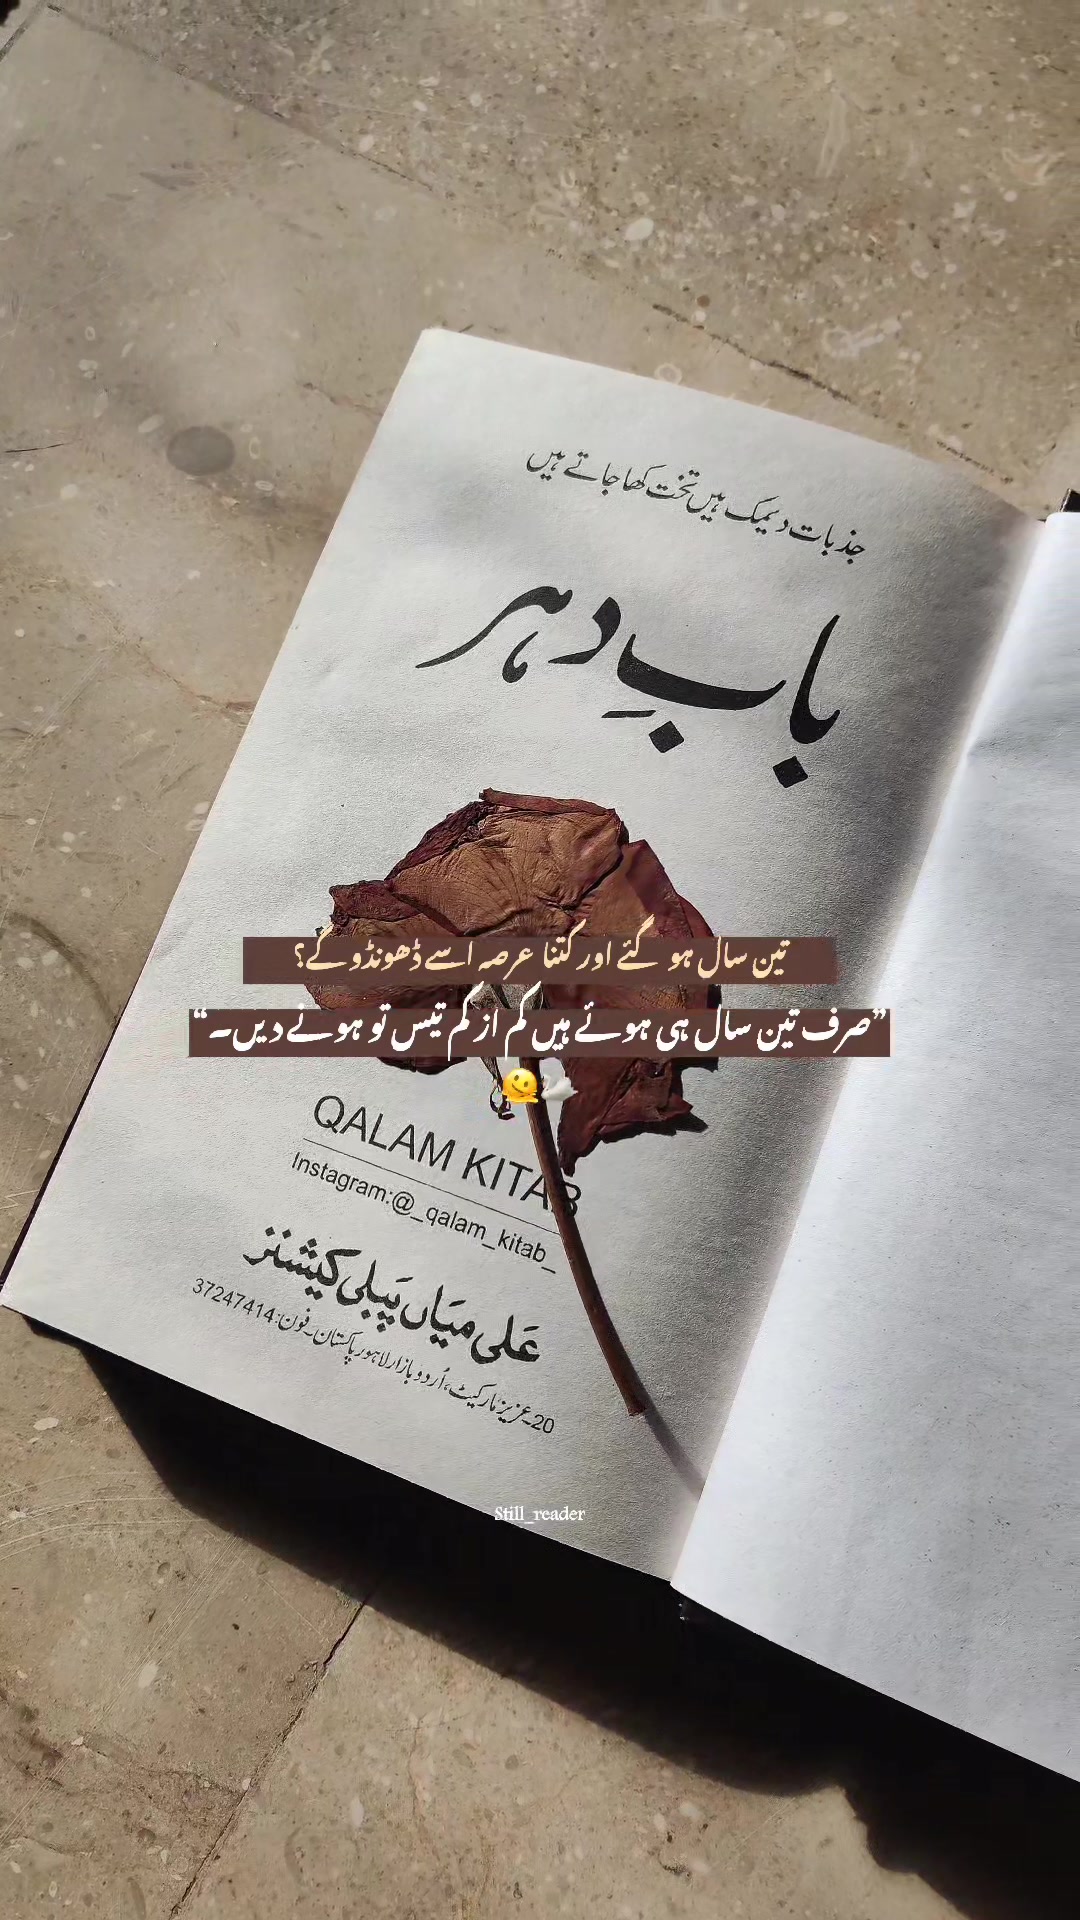 جذبات دیمک ہیں تخت کھا جاتے ہیں
بابِ دہر
تین سال ہو گئے اور کتنا عرصہ اسے ڈھونڈو گے؟
”صرف تین سال ہی ہوئے ہیں کم از کم تیس تو ہونے دیں۔“
🫠🦢
QALAM KITAB
Instagram:@_qalam_kitab_
عَلی میَاں پَبلی کیشنز
20۔عزیز مارکیٹ، اُردو بازار لاہور پاکستان۔ فون: 37247414
Still_reader